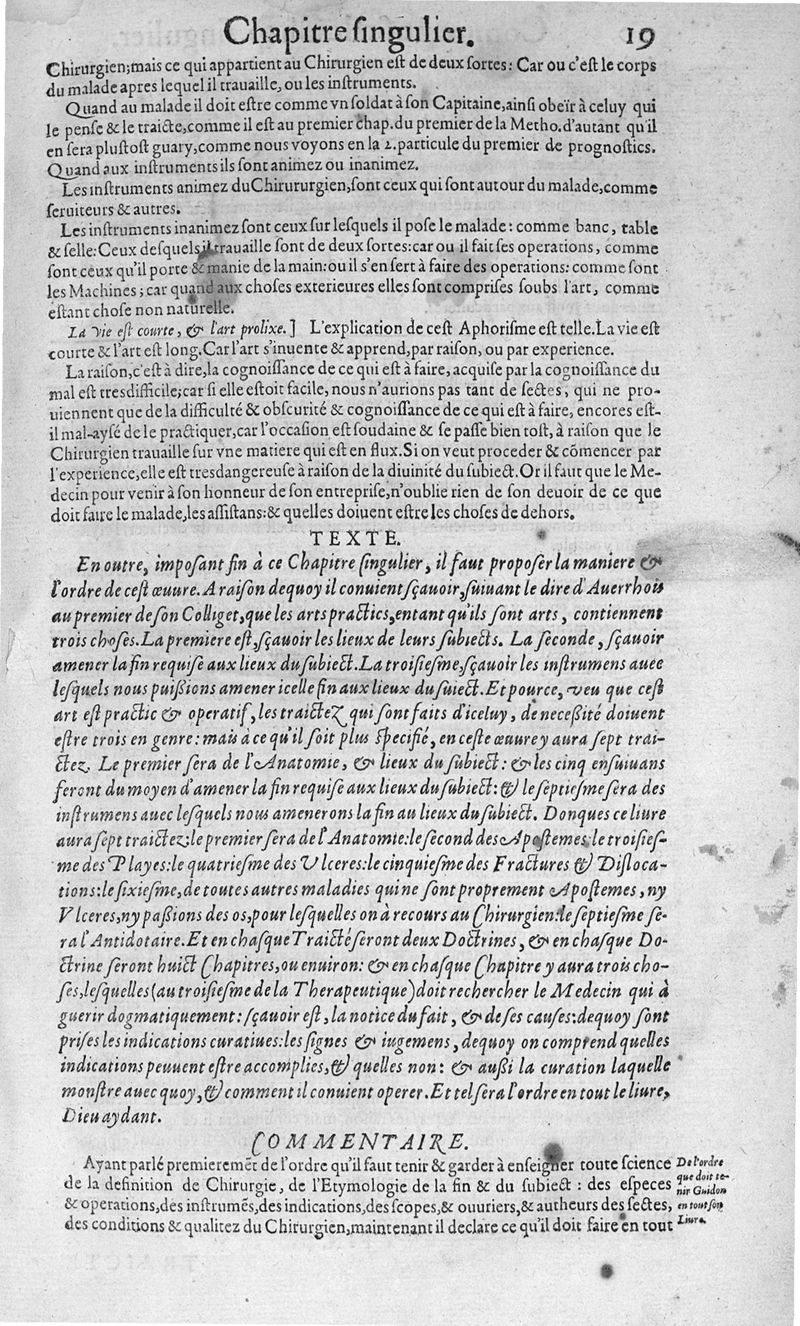 Chapitre ſingulier. 19
Chirurgien;mais ce qui appartient au Chirurgien eſt de deux ſortes: Car ou c'eſt le corps
du malade apres lequel il trauaille, ou les inſtruments.
Quand au malade il doit eſtre comme vn ſoldat à ſon Capitaine,ainſi obeïr à celuy qui
le penſe & le traicte,comme il eſt au premier chap.du premier de la Metho.d'autant qu'il
en ſera pluſtoſt guary,comme nous voyons en la 2.particule du premier de prognoſtics.
Quand aux inſtruments ils ſont animez ou inanimez.
Les inſtruments animez du Chirururgien,ſont ceux qui ſont autour du malade,comme
ſeruiteurs & autres.
Les inſtruments inanimez ſont ceux ſur leſquels il poſe le malade: comme banc, table
& ſelle:Ceux deſquels il trauaille ſont de deux ſortes:car ou il fait ſes operations, comme
ſont ceux qu'il porte & manie de la main:ou il s'en ſert à faire des operations: comme ſont
les Machines; car quand aux choſes exterieures elles ſont compriſes ſoubs l'art, comme
eſtant choſe non naturelle.
La vie eſt courte, & l'art prolixe.] L'explication de ceſt Aphoriſme eſt telle.La vie eſt
courte & l'art eſt long.Car l'art s'inuente & apprend,par raiſon, ou par experience.
La raiſon,c'eſt à dire,la cognoiſſance de ce qui eſt à faire, acquiſe par la cognoiſſance du
mal eſt tresdifficile;car ſi elle eſtoit facile, nous n'aurions pas tant de ſectes, qui ne pro-
uiennent que de la difficulté & obſcurité & cognoiſſance de ce qui eſt à faire, encores eſt-
il mal-aysé de le practiquer,car l'occaſion eſt ſoudaine & ſe paſſe bien toſt, à raiſon que le
Chirurgien trauaille ſur vne matiere qui eſt en flux.Si on veut proceder & cõmencer par
l'experience,elle eſt tresdangereuſe à raiſon de la diuinité du ſubiect.Or il faut que le Me-
decin pour venir à ſon honneur de ſon entrepriſe,n'oublie rien de ſon deuoir de ce que
doit faire le malade,les aſſiſtans:& quelles doiuent eſtre les choſes de dehors.
TEXTE.
En outre, impoſant fin à ce Chapitre ſingulier, il faut propoſer la maniere &
l'ordre de ceſt œuure.A raiſon dequoy il conuient ſçauoir,ſuiuant le dire d'Auerrhois
au premier de ſon Colliget,que les arts practics,entant qu'ils ſont arts, contiennent
trois choſes.La premiere eſt,ſçauoir les lieux de leurs ſubiects. La ſeconde, ſçauoir
amener la fin requiſe aux lieux du ſubiect.La troiſieſme,ſçauoir les inſtrumens auec
leſquels nous puiſſions amener icelle fin aux lieux du ſuiect.Et pource, veu que ceſt
art eſt practic & operatif, les traictez qui ſont faits d'iceluy, de neceſſité doiuent
eſtre trois en genre: mais à ce qu'il ſoit plus ſpecifié, en ceſte œuure y aura ſept trai-
ctez. Le premier ſera de l'Anatomie, & lieux du ſubiect: & les cinq enſuiuans
feront du moyen d'amener la fin requiſe aux lieux du ſubiect: & le ſeptieſme ſera des
inſtrumens auec leſquels nous amenerons la fin au lieux du ſubiect. Donques ce liure
aura ſept traictez:le premier ſera de l'Anatomie:le ſecond des Apoſtemes:le troiſieſ-
me des Playes:le quatrieſme des Vlceres:le cinquieſme des Fractures & Diſloca-
tions:le ſixieſme,de toutes autres maladies qui ne ſont proprement Apoſtemes, ny
Vlceres,ny paſſions des os,pour leſquelles on à recours au Chirurgien:le ſeptieſme ſe-
ra l'Antidotaire.Et en chaſque Traicté ſeront deux Doctrines, & en chaſque Do-
ctrine ſeront huict Chapitres,ou enuiron: & en chaſque Chapitre y aura trois cho-
ſes,leſquelles (au troiſieſme de la Therapeutique)doit rechercher le Medecin qui à
guerir dogmatiquement: ſçauoir eſt, la notice du fait, & de ſes cauſes:dequoy ſont
priſes les indications curatiues:les ſignes & iugemens, dequoy on comprend quelles
indications peuuent eſtre accomplies, & quelles non: & auſſi la curation laquelle
monſtre auec quoy, & comment il conuient operer. Et tel ſera l'ordre en tout le liure,
Dieu aydant.
COMMENTAIRE.
Ayant parlé premieremẽt de l'ordre qu'il faut tenir & garder à enſeigner toute ſcience
de la definition de Chirurgie, de l'Etymologie de la fin & du ſubiect: des eſpeces
& operations,des inſtrumẽs,des indications,des ſcopes,& ouuriers,& autheurs des ſectes,
des conditions & qualitez du Chirurgien,maintenant il declare ce qu'il doit faire en tout
De l'ordre
que doit te-
nir Guidon
en tout ſon
Liure.